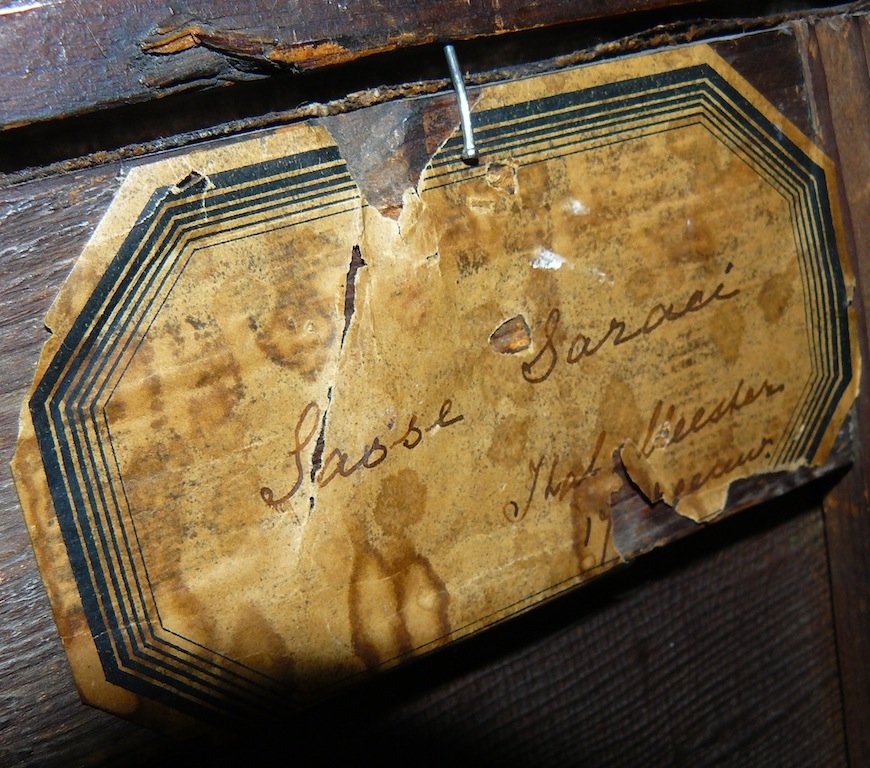 Sasse Saraci
Ital. Meester
17 eeuw.